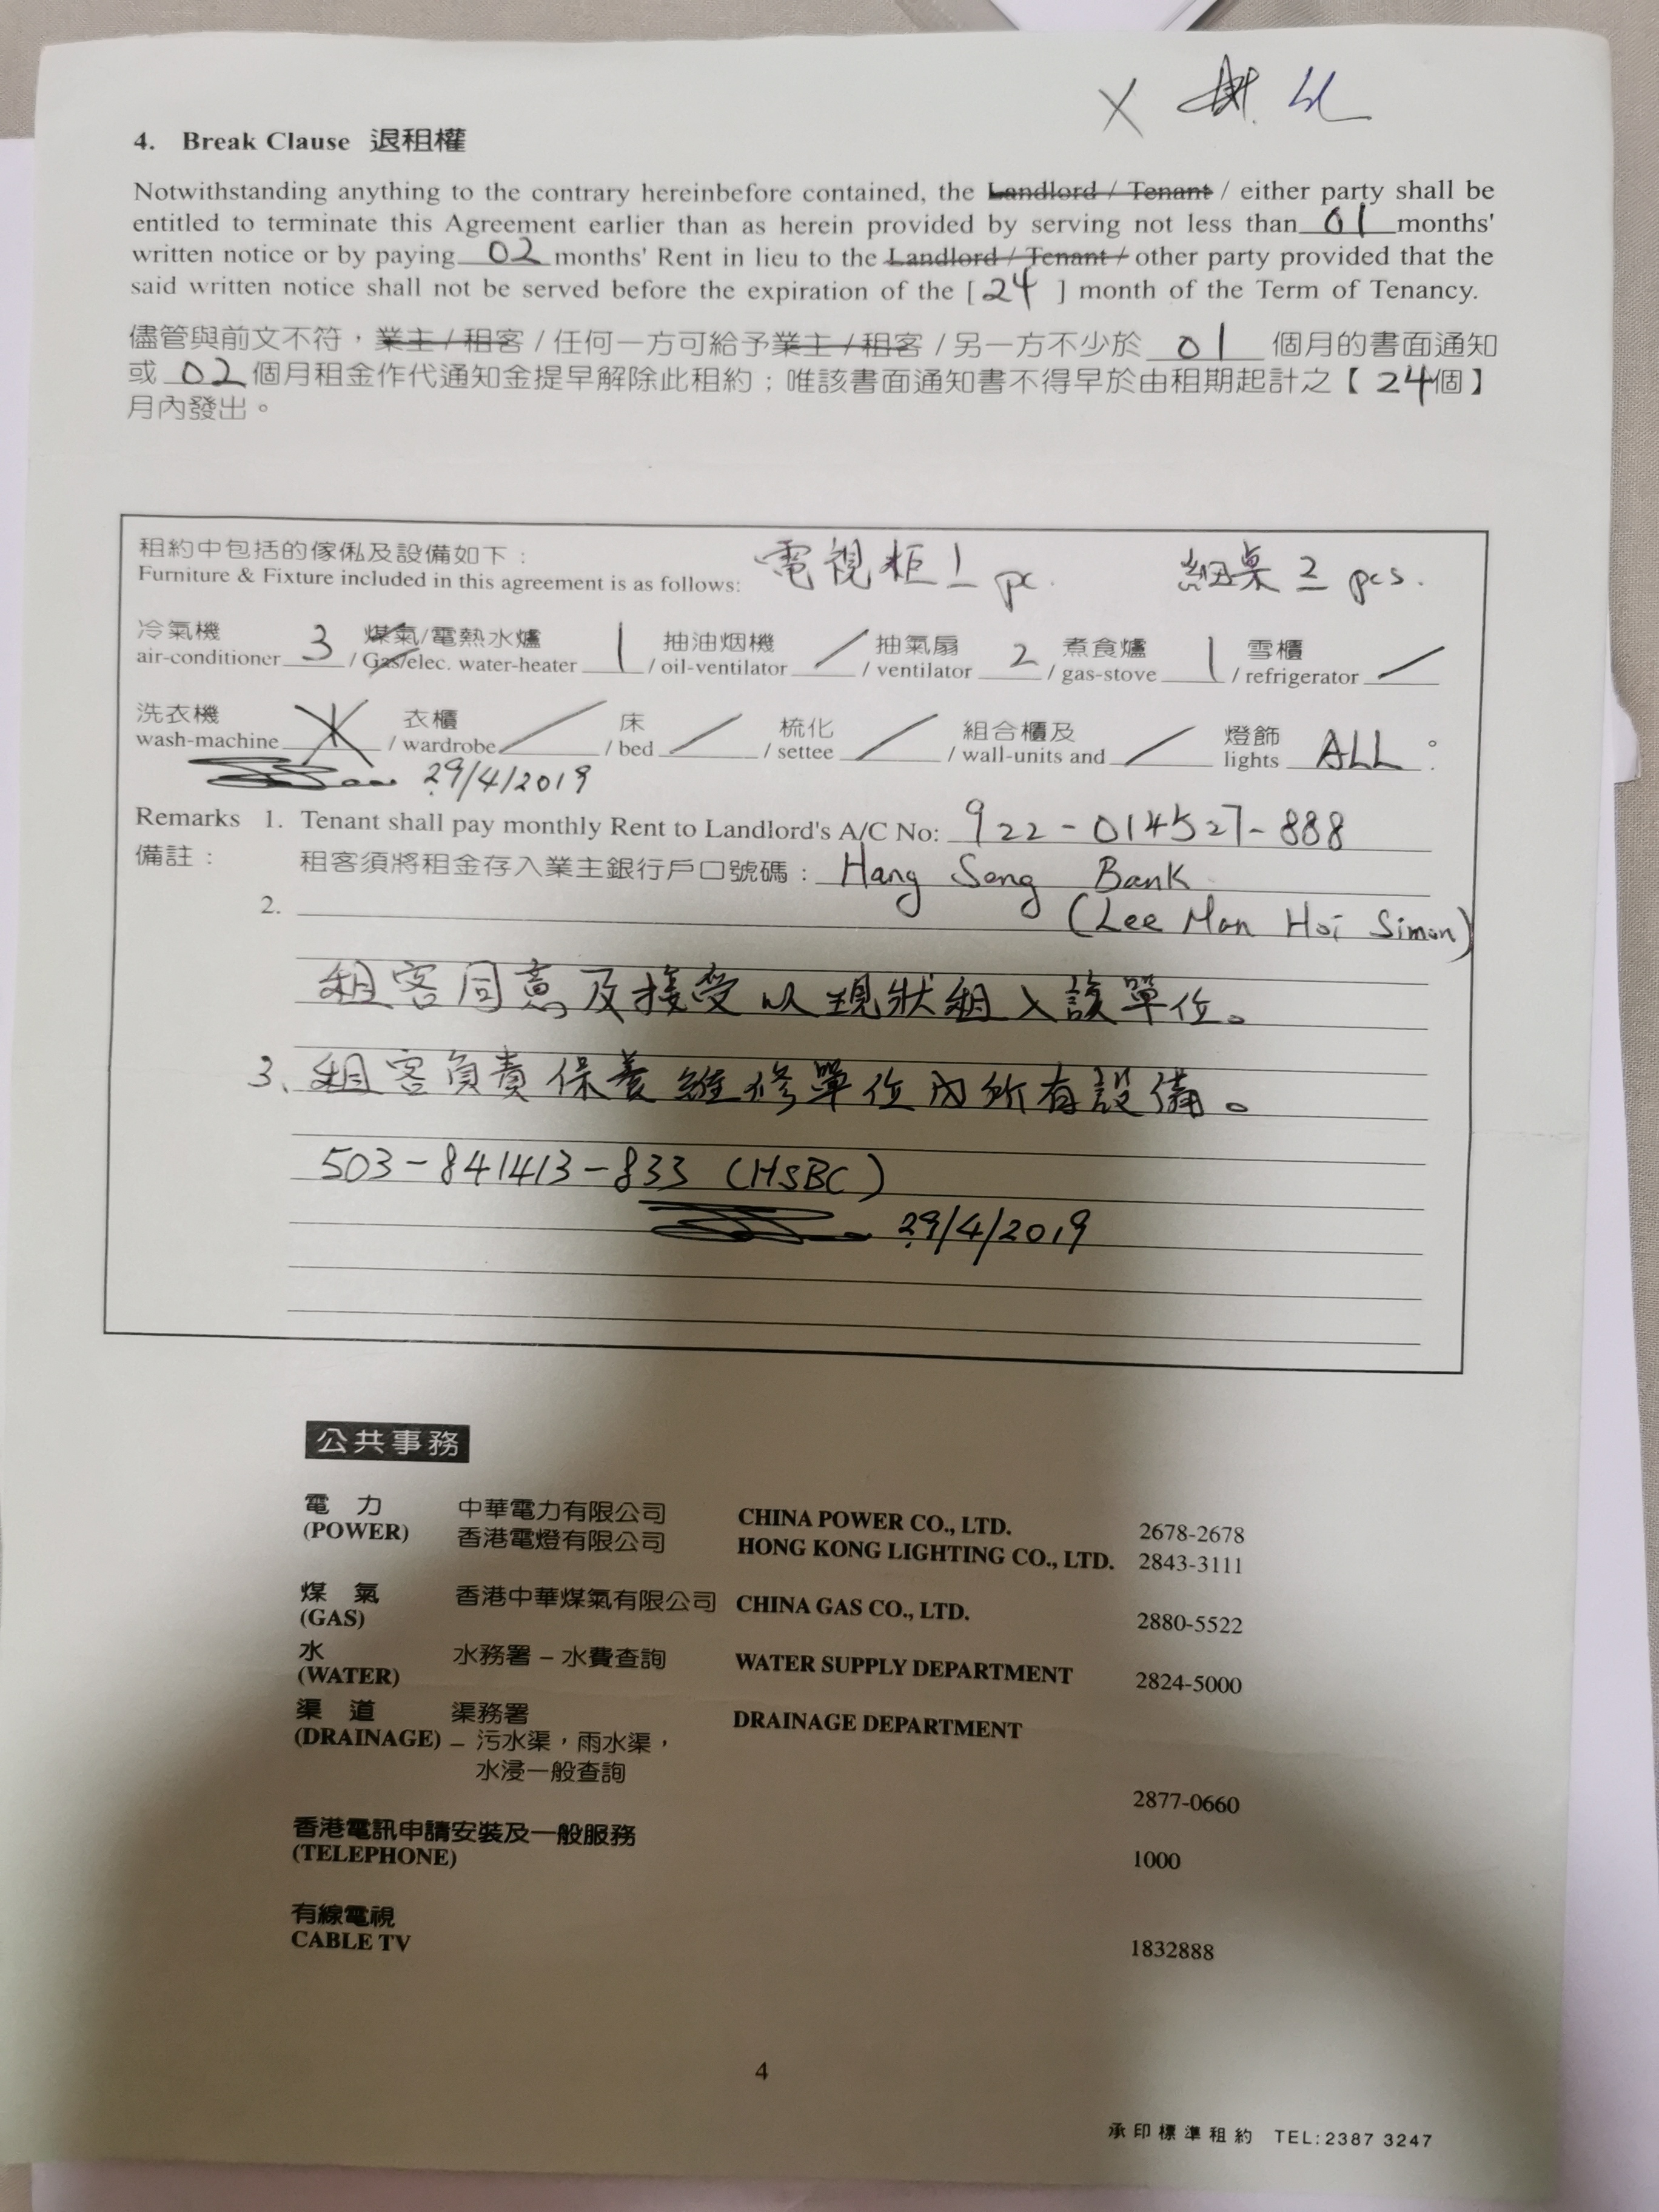 X
4. Break Clause 退租權
Notwithstanding anything to the contrary hereinbefore contained, the Landlord / Tenant / either party shall be
entitled to terminate this Agreement earlier than as herein provided by serving not less than 01 months'
written notice or by paying 02 months' Rent in lieu to the Landlord / Tenant / other party provided that the
said written notice shall not be served before the expiration of the [ 24 ] month of the Term of Tenancy.
儘管與前文不符，業主 / 租客 / 任何一方可給予業主 / 租客 / 另一方不少於 01 個月的書面通知
或 02 個月租金作代通知金提早解除此租約；唯該書面通知書不得早於由租期起計之【 24個】
月內發出。
租約中包括的傢俬及設備如下： 電視柜 1 pc. 細桌 2 pcs.
Furniture & Fixture included in this agreement is as follows:
冷氣機 3 煤氣/電熱水爐 1 抽油烟機 / 抽氣扇 2 煮食爐 1 雪櫃 /
air-conditioner / Gas/elec. water-heater / oil-ventilator / ventilator / gas-stove / refrigerator
洗衣機 衣櫃 / 床 / 梳化 / 組合櫃及 / 燈飾 ALL :
wash-machine / wardrobe / bed / settee / wall-units and lights
29/4/2019
Remarks 1. Tenant shall pay monthly Rent to Landlord's A/C No: 922-014527-888
備註： 租客須將租金存入業主銀行戶口號碼： Hang Seng Bank
2. (Lee Man Hoi Simon)
租客同意及接受以現狀租入該單位。
3、租客負責保養維修單位內所有設備。
503-841413-833 (HSBC)
29/4/2019
公共事務
電 力 中華電力有限公司 CHINA POWER CO., LTD. 2678-2678
(POWER) 香港電燈有限公司 HONG KONG LIGHTING CO., LTD. 2843-3111
煤 氣 香港中華煤氣有限公司 CHINA GAS CO., LTD. 2880-5522
(GAS)
水 水務署 – 水費查詢 WATER SUPPLY DEPARTMENT 2824-5000
(WATER)
渠 道 渠務署 DRAINAGE DEPARTMENT
(DRAINAGE) – 污水渠，雨水渠，
水浸一般查詢
2877-0660
香港電訊申請安裝及一般服務
(TELEPHONE) 1000
有線電視
CABLE TV 1832888
4
承印標準租約 TEL:2387 3247